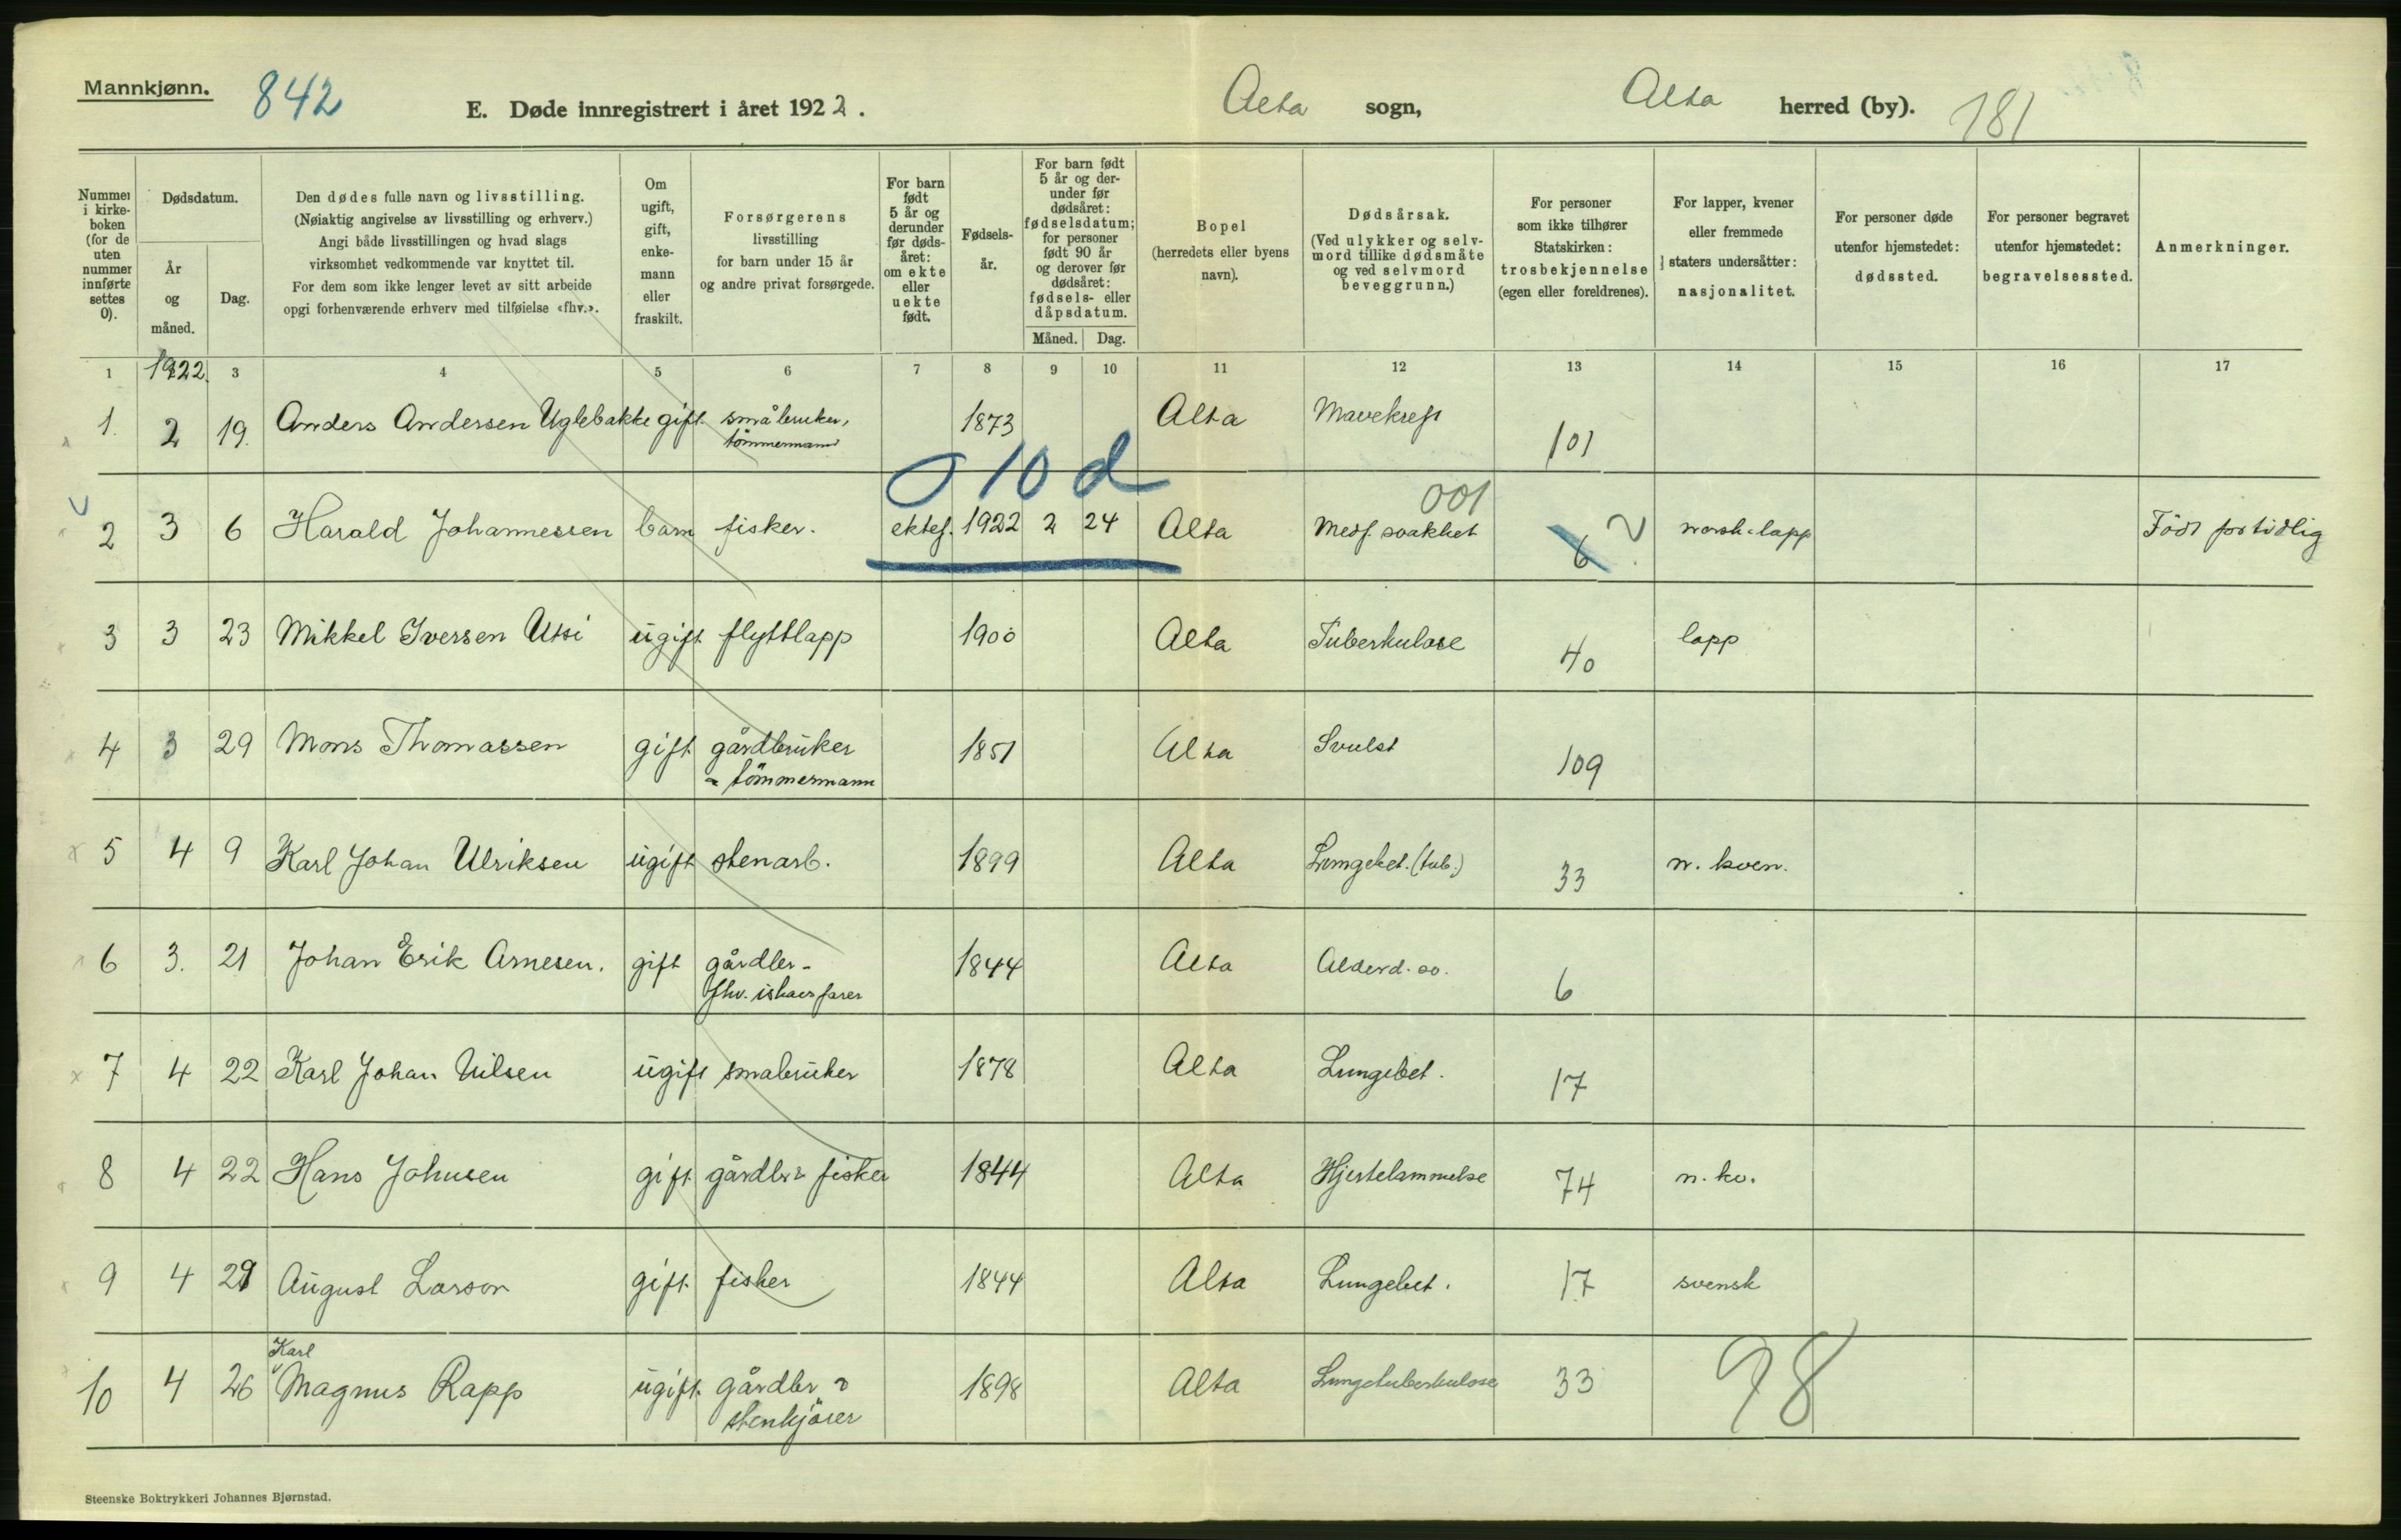 Mannkjønn.
842
E. Døde innregistrert i året 1922.
Alta sogn,
Alta herred (by).
181
Nummer i kirke-boken (for de uten nummer innførte settes 0).
Dødsdatum.
År og måned.
Dag.
Den dødes fulle navn og livsstilling.
(Nøiaktig angivelse av livsstilling og erhverv.)
Angi både livsstillingen og hvad slags
virksomhet vedkommende var knyttet til.
For dem som ikke lenger levet av sitt arbeide
opgi forhenværende erhverv med tilføielse «fhv.».
Om ugift, gift, enke-mann eller fraskilt.
Forsørgerens
livsstilling
for barn under 15 år
og andre privat forsørgede.
For barn født 5 år og derunder før døds-året: om ekte eller uekte født.
Fødsels-år.
For barn født 5 år og der-under før dødsåret: fødselsdatum; for personer født 90 år og derover før dødsåret: fødsels- eller dåpsdatum.
Måned.
Dag.
Bopel
(herredets eller byens navn).
Dødsårsak.
(Ved ulykker og selv-mord tillike dødsmåte og ved selvmord beveggrunn.)
For personer som ikke tilhører Statskirken: trosbekjennelse (egen eller foreldrenes).
For lapper, kvener eller fremmede staters undersåtter: nasjonalitet.
For personer døde utenfor hjemstedet: dødssted.
For personer begravet utenfor hjemstedet: begravelsessted.
Anmerkninger.
1 1922. 3 4 5 6 7 8 9 10 11 12 13 14 15 16 17
1. 2 19. Anders Andersen Uglebakke gift småbruker, 1873 Alta Mavekreft 101
tömmermann
0 10 d
001
2 3 6 Harald Johannessen barn fisker. ektef. 1922 2 24 Alta Medf. svakhet 6 2 norsk-lapp Född for tidlig
3 3 23 Mikkel Iversen Utsi ugift flyttlapp 1900 Alta Tuberkulose 40 lapp
4 3 29 Mons Thomassen gift gårdbruker 1851 Alta Svulst 109
tömmermann
5 4 9 Karl Johan Ulriksen ugift stenarb. 1899 Alta Lungebet. (tub.) 33 n. kven.
6 3. 21 Johan Erik Arnesen. gift gårdbr- 1844 Alta Alderd. sv. 6
fhv. ishavsfarer
7 4 22 Karl Johan Nilsen ugift småbruker 1878 Alta Lungebet. 17
8 4 22 Hans Johnsen gift gårdbr & fisker 1844 Alta Hjertelammelse 74 n. kv.
9 4 29 August Larson gift fisker 1844 Alta Lungebet. 17 svensk
Karl
10 4 26 Magnus Rapp ugift gårdbr & 1898 Alta Lungetuberkulose 33 98
stenkjörer
Steenske Boktrykkeri Johannes Bjørnstad.